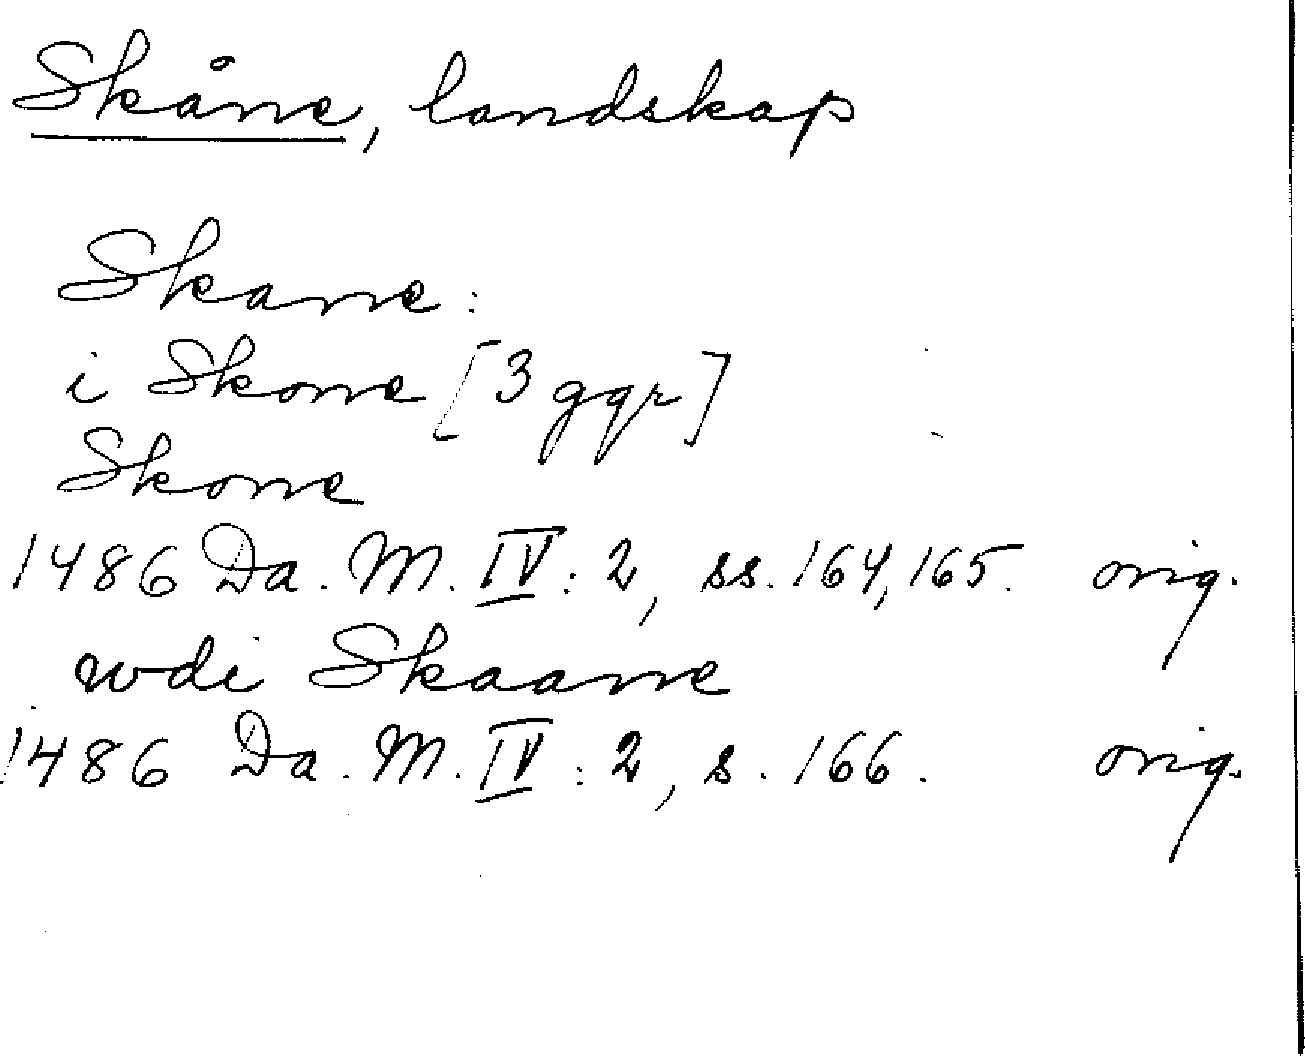 Skåne, landskap
Skane:
i Skone [3 ggr]
Skone
1486 Da. M. IV: 2, ss. 164, 165. orig.
wdi Skaane
1486 Da. M. IV: 2, s. 166. orig.